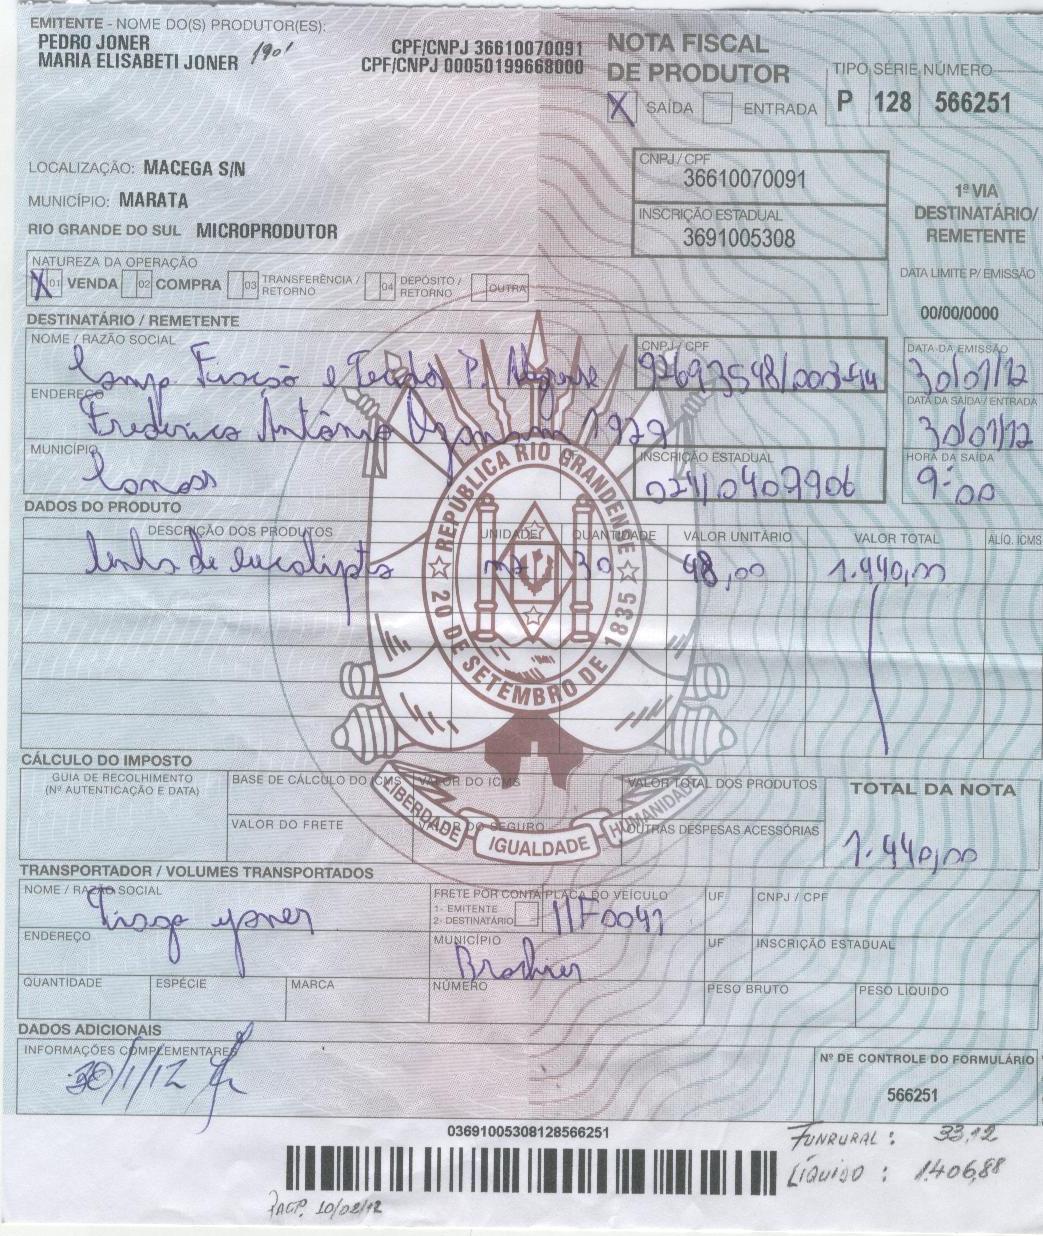 EMITENTE - NOME DO(S) PRODUTOR(ES):
PEDRO JONER
MARIA ELISABETI JONER
1901
CPF/CNPJ 36610070091
CPF/CNPJ 00050199668000
NOTA FISCAL
DE PRODUTOR
X SAÍDA ENTRADA
TIPO SÉRIE NÚMERO
P 128 566251
LOCALIZAÇÃO: MACEGA S/N
MUNICÍPIO: MARATA
RIO GRANDE DO SUL MICROPRODUTOR
CNPJ / CPF
36610070091
INSCRIÇÃO ESTADUAL
3691005308
1ª VIA
DESTINATÁRIO/
REMETENTE
DATA LIMITE P/ EMISSÃO
00/00/0000
NATUREZA DA OPERAÇÃO
X 01 VENDA 02 COMPRA 03 TRANSFERÊNCIA / RETORNO 04 DEPÓSITO / RETORNO OUTRA
DESTINATÁRIO / REMETENTE
NOME / RAZÃO SOCIAL
Comp. Fiação e Tecidos P. Alegrense
CNPJ / CPF
DATA DA EMISSÃO
30/01/12
ENDEREÇO
Frederico Antônio Ozanam 1929
DATA DA SAÍDA / ENTRADA
30/01/12
MUNICÍPIO
Canoas
INSCRIÇÃO ESTADUAL
HORA DA SAÍDA
9:00
DADOS DO PRODUTO
DESCRIÇÃO DOS PRODUTOS UNIDADE QUANTIDADE VALOR UNITÁRIO VALOR TOTAL ALÍQ. ICMS
lenha de eucalipto 30 48,00 1.440,00
REPÚBLICA RIO GRANDENSE
20 DE SETEMBRO DE 1835
LIBERDADE IGUALDADE HUMANIDADE
CÁLCULO DO IMPOSTO
GUIA DE RECOLHIMENTO
(Nº AUTENTICAÇÃO E DATA)
BASE DE CÁLCULO DO ICMS VALOR DO ICMS VALOR TOTAL DOS PRODUTOS
TOTAL DA NOTA
VALOR DO FRETE VALOR DO SEGURO OUTRAS DESPESAS ACESSÓRIAS
1.440,00
TRANSPORTADOR / VOLUMES TRANSPORTADOS
NOME / RAZÃO SOCIAL
Tiago
FRETE POR CONTA
1- EMITENTE
2- DESTINATÁRIO
PLACA DO VEÍCULO
IIF0041
UF CNPJ / CPF
ENDEREÇO
MUNICÍPIO
Brochier
UF INSCRIÇÃO ESTADUAL
QUANTIDADE ESPÉCIE MARCA NÚMERO PESO BRUTO PESO LÍQUIDO
DADOS ADICIONAIS
INFORMAÇÕES COMPLEMENTARES
30/1/12
Nº DE CONTROLE DO FORMULÁRIO
566251
03691005308128566251
FUNRURAL: 33,12
LÍQUIDO: 1.406,88
10/02/12